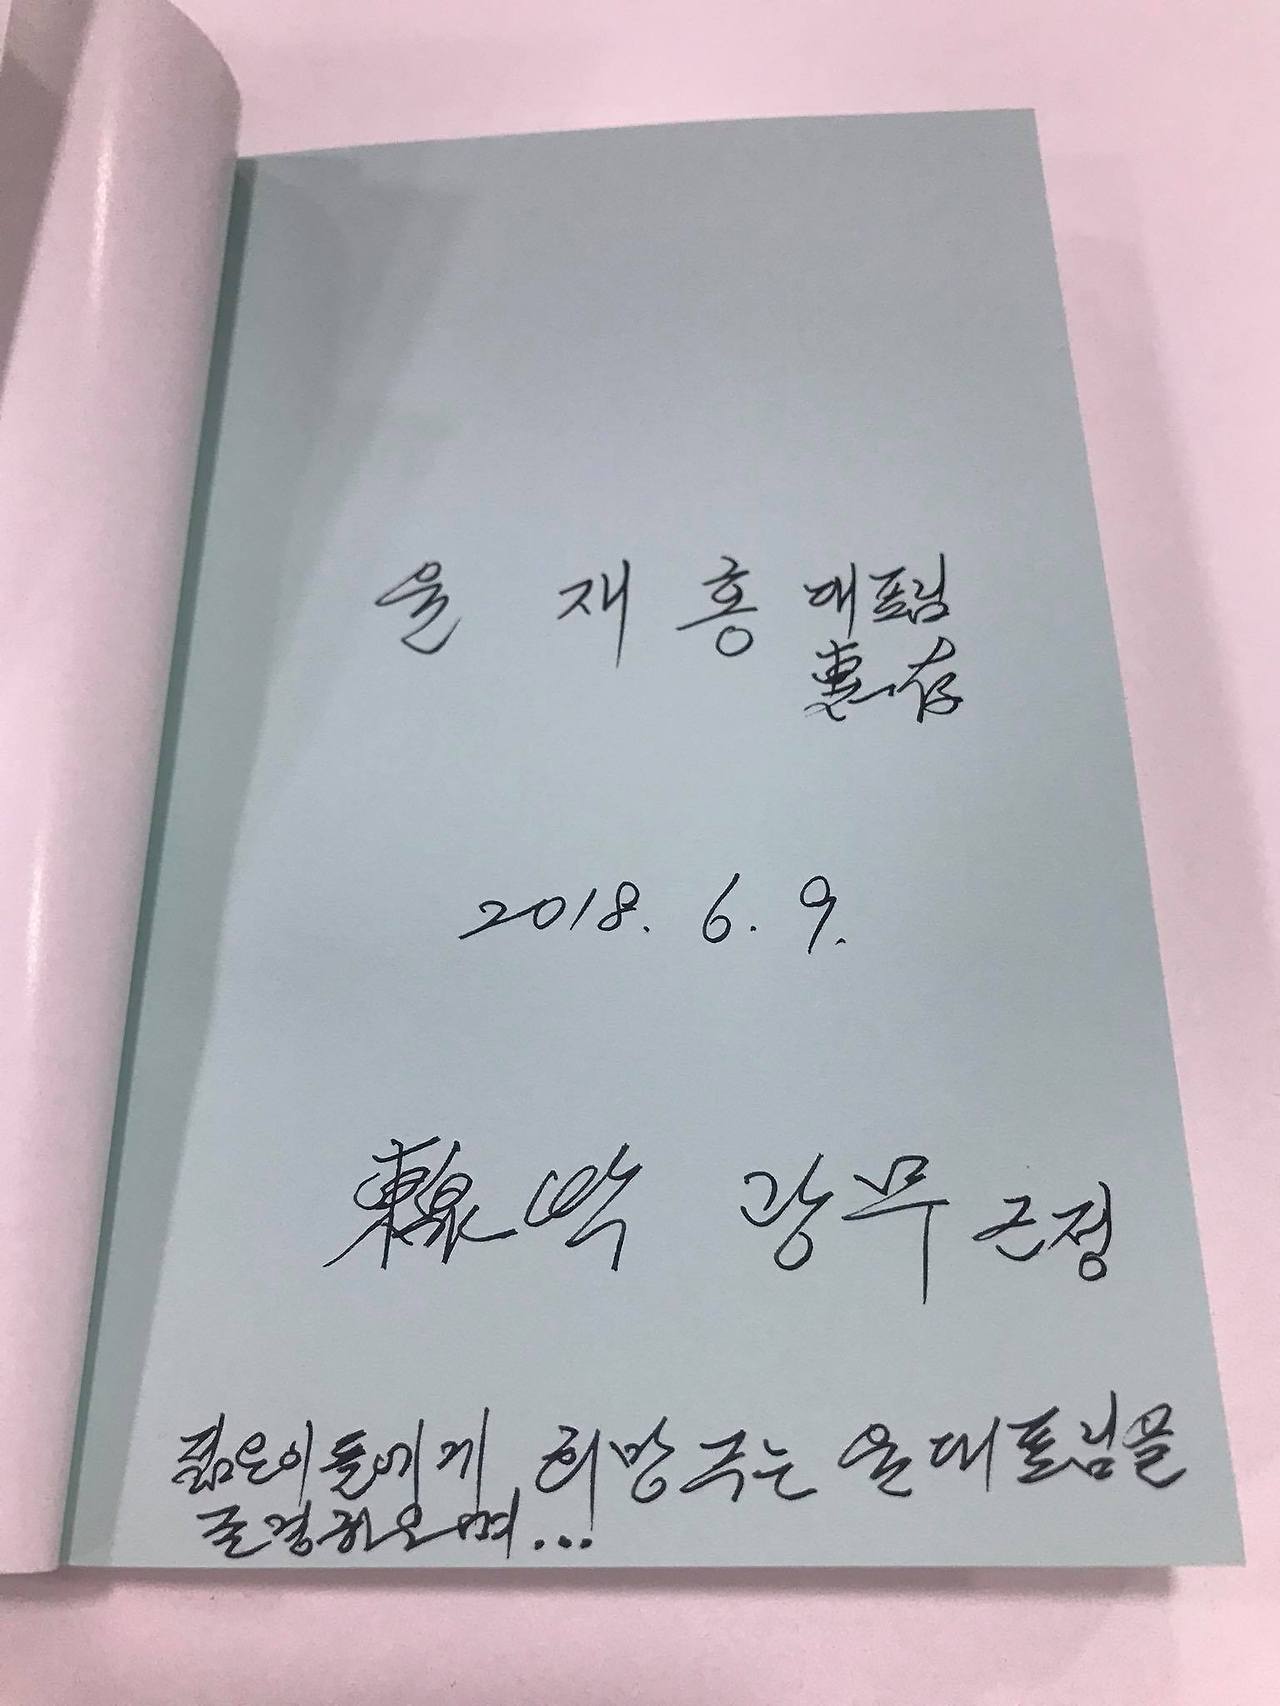 윤 재 홍 대표님
惠存
2018. 6. 9.
東泉 박 광무 근정
젊은이들에게 희망 주는 윤대표님을
존경하오며...